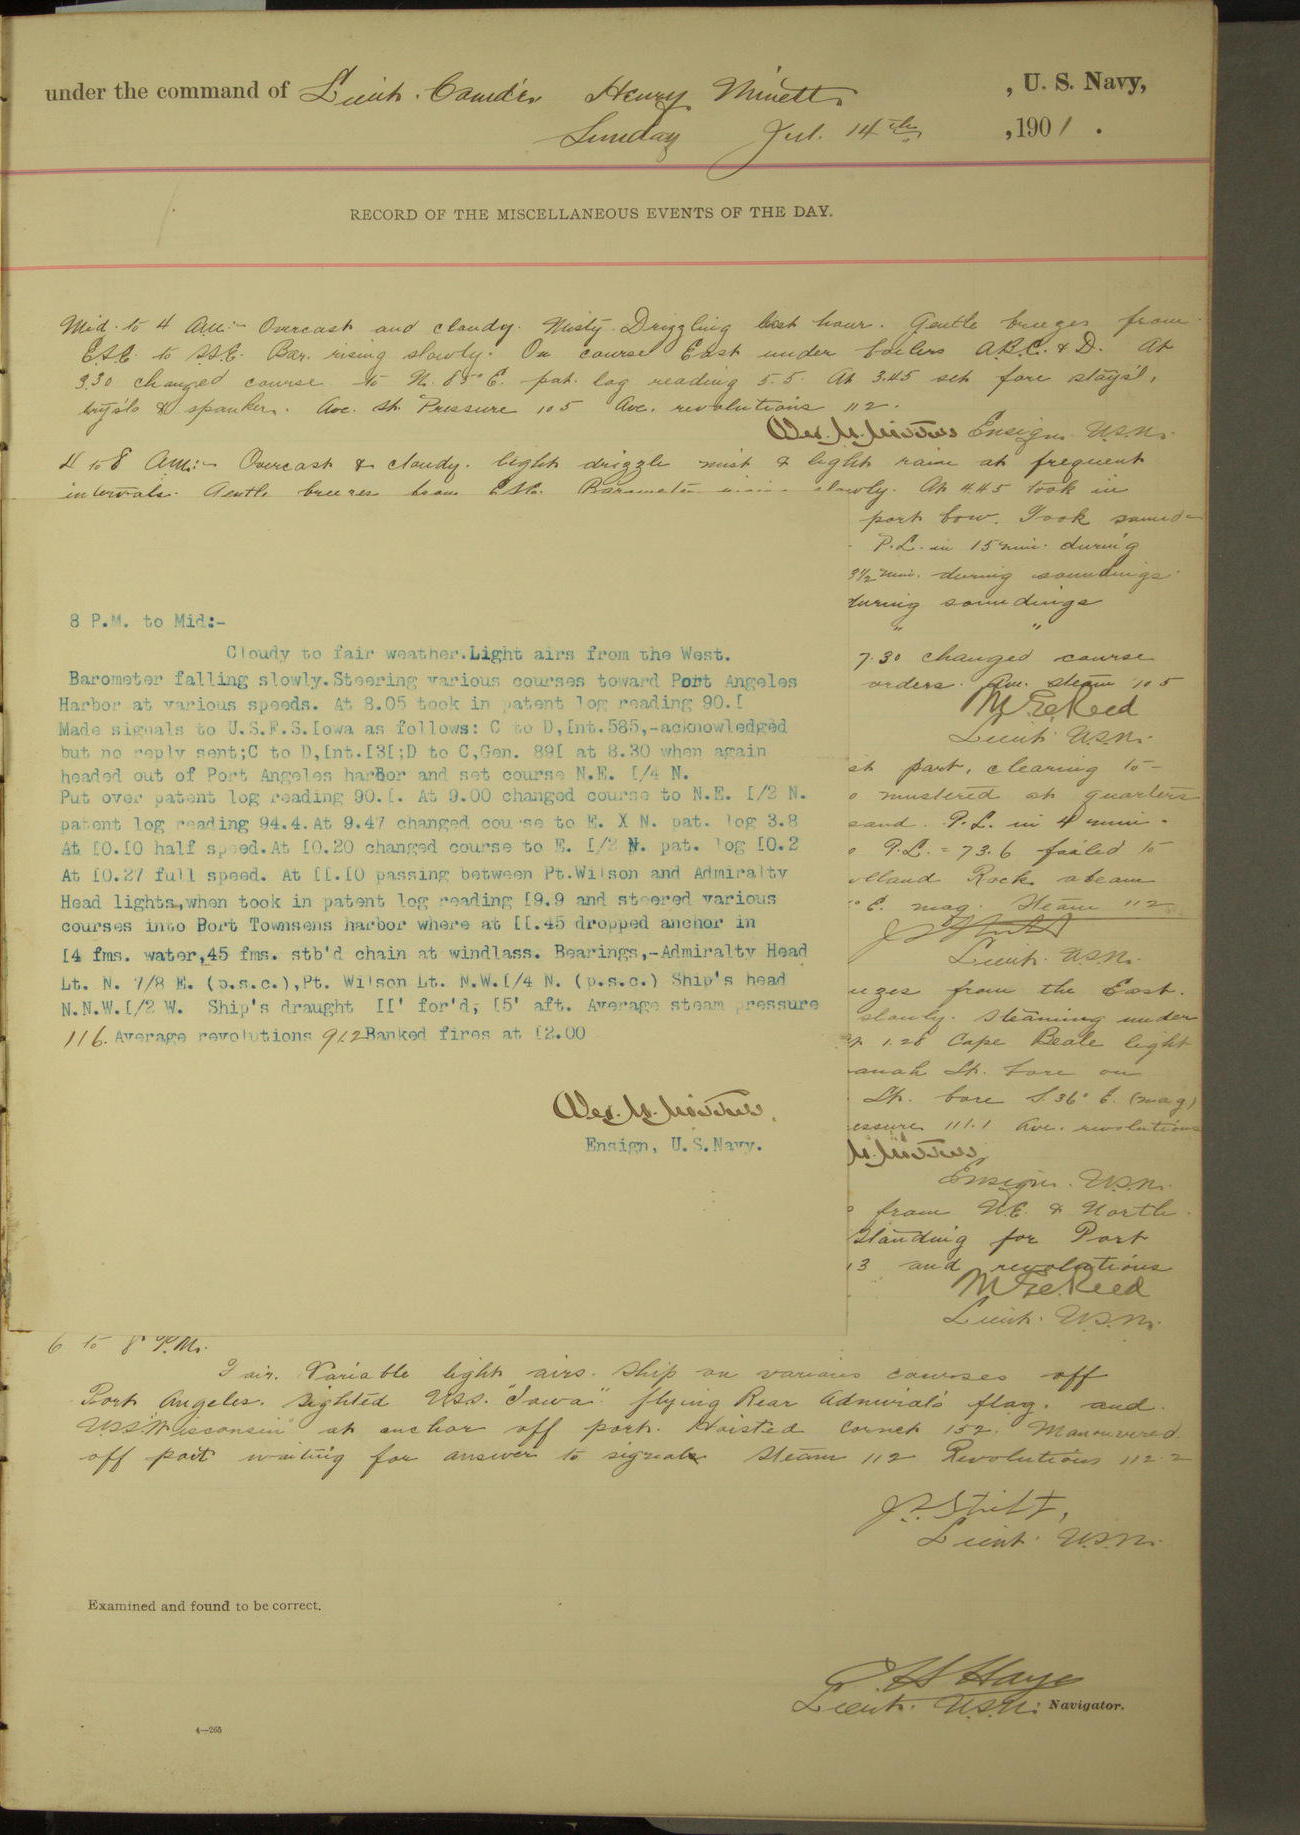 under the command of Lieut. Comd'r Henry Minett, U. S. Navy,
Sunday Jul. 14th, 1901.
RECORD OF THE MISCELLANEOUS EVENTS OF THE DAY.
Mid. to 4 A.M:- Overcast and cloudy. Misty. Drizzling last hour. Gentle breezes from
E.S.E. to S.S.E. Bar. rising slowly. On course East under boilers A.B.C. & D. At
3.30 changed course to N. 85° E. pat. log reading 5.5. At 3.45 set fore stays'l,
trys'ls & spanker. Ave. St. Pressure 105 Ave. revolutions 112.
Ensign. U.S.N.
4 to 8 A.M:- Overcast & cloudy. light drizzle mist & light rain at frequent
intervals. Gentle breezes from Barometer slowly. At 4.45 took in
port bow. Took sound-
P.L. in 15 min. during
3½ min. during soundings
during soundings
" "
7.30 changed course
orders. Av. steam 105
M E Reed
Lieut. U.S.N.
8 P.M. to Mid:-
Cloudy to fair weather.Light airs from the West.
Barometer falling slowly.Steering various courses toward Port Angeles
Harbor at various speeds. At 8.05 took in patent log reading 90.[
Made signals to U.S.F.S.Iowa as follows: C to D,Int.585,-acknowledged
but no reply sent;C to D,Int.[3[;D to C,Gen. 89[ at 8.30 when again
headed out of Port Angeles harBor and set course N.E. [/4 N.
Put over patent log reading 90.[. At 9.00 changed course to N.E. [/2 N.
patent log reading 94.4.At 9.47 changed course to E. X N. pat. log 3.8
At [0.[0 half speed.At [0.20 changed course to E. [/2 N. pat. log [0.2
At [0.27 full speed. At [[.[0 passing between Pt.Wilson and Admiralty
Head lights,when took in patent log reading [9.9 and steered various
courses into Port Townsens harbor where at [[.45 dropped anchor in
[4 fms. water,45 fms. stb'd chain at windlass. Bearings,-Admiralty Head
Lt. N. 7/8 E. (p.s.c.),Pt. Wilson Lt. N.W.[/4 N. (p.s.c.) Ship's head
N.N.W.[/2 W. Ship's draught [[' for'd, [5' aft. Average steam pressure
116. Average revolutions 91.2 Banked fires at [2.00
Ensign, U.S.Navy.
st part, clearing to-
o mustered at quarters
sand. P.L. in 4 min.
o P.L. = 73.6 failed to
olland Rock abeam
° E. mag. Steam 112
Lieut. U.S.N.
ezes from the East.
slowly. Steaming under
1.28 Cape Beale light
anah Lt. bore on
Lt. bore S.36° E. (mag)
essure 111.1 Ave. revolutions
Ensign. U.S.N.
o from N.E. & North.
Standing for Port
13 and revolutions
M E Reed
Lieut. U.S.N.
6 to 8 P.M.
Fair. Variable light airs. Ship on various courses off
Port Angeles. Sighted U.S.S. "Iowa" flying Rear Admiral's flag. and
U.S.S. "Wisconsin" at anchor off port. Hoisted Cornet 152. Manouvered
off port waiting for answer to signals Steam 112 Revolutions 112.2
Lieut. U.S.N.
Examined and found to be correct.
Lieut. U.S.N. Navigator.
4—265